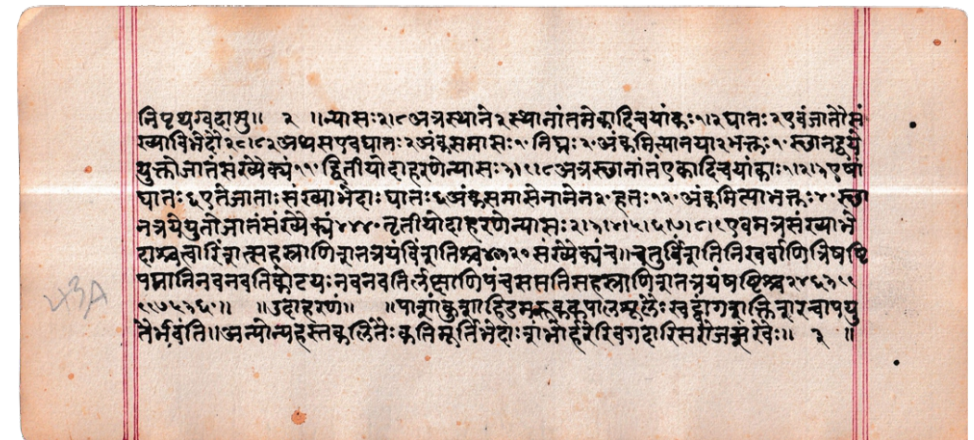 निपृथग्वदासु॥ २ ॥न्यासः२।८अत्रस्थाने२स्थानांतमेकादिचयांकाः१।२घातः२एवंजातौसं
ख्याविभेदौ२८।८२अथसएवघातः२अंकसमास१०निघ्नः२०अंकमित्यानया२भक्तः१०स्थानद्वये
युक्तोजातंसंख्यैक्यं११०द्वितीयोदाहरणेन्यासः३।९।८अत्रस्थानांतंएकादिचयांकाः१।२।३एषां
घातः६एतेजाताःसंख्याभेदाः घातः६अंकसमासेनानेन२०हतः१२०अंकमित्याभक्तः४०स्था
नत्रयेयुतोजातंसंख्यैक्यं४४४०तृतीयोदाहरणेन्यासः२।३।४।५।६।७।८।९एवमत्रसंख्याभे
दाश्चत्वारिंशत्सहस्राणिशतत्रयंविंशतिश्च४०३२०संख्यैक्यंच॥चतुर्विंशतिनिखर्वाणित्रिषष्टि
पद्मानिनवनवतिकोटयःनवनवतिर्लक्षाणिपंचसप्ततिसहस्राणिशतत्रयंषष्टिश्च२४६३९९
९९७५३६०॥ ॥उदाहरणं॥ ॥पाशांकुशाहिडमरूककपालशूलैःखट्वांगशक्तिशरचापयु
तैर्भवंति॥अन्योन्यहस्तकलितैःकतिमूर्तिभेदाःशंभोर्हरेरिवगदारिसरोजशंखैः॥ ३ ॥
43A